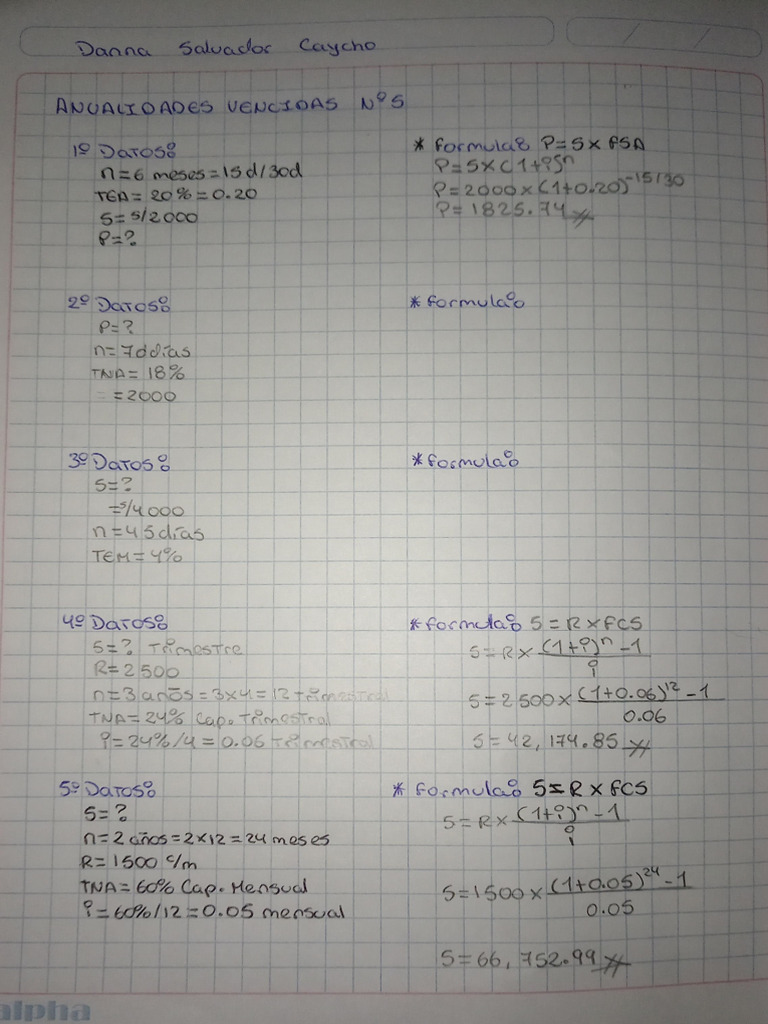 Danna Salvador Caycho
ANUALIDADES VENCIDAS Nº5
1º Datos:
n=6 meses=15d/30d
TEA=20%=0.20
S=s/2000
P=?
* formula: P=S x FSA
P=S x (1+i)^n
P=2000x(1+0.20)^-15/30
P=1825.74
2º Datos:
P=?
n=70días
TNA=18%
=2000
* formula:
3º Datos:
S=?
=s/4000
n=45días
TEM=4%
* formula:
4º Datos:
S=? Trimestre
R=2500
n=3 años=3x4=12 trimestral
TNA=24% Cap. Trimestral
i=24%/4=0.06 Trimestral
* formula: S=RxFCS
S=Rx (1+i)^n -1
i
S=2500x (1+0.06)^12 -1
0.06
S=42,174.85
5º Datos:
S=?
n=2 años=2x12=24 meses
R=1500 c/m
TNA=60% Cap. Mensual
i=60%/12=0.05 mensual
* formula: S=RxFCS
S=Rx (1+i)^n -1
i
S=1500x (1+0.05)^24 -1
0.05
S=66,752.99
alpha